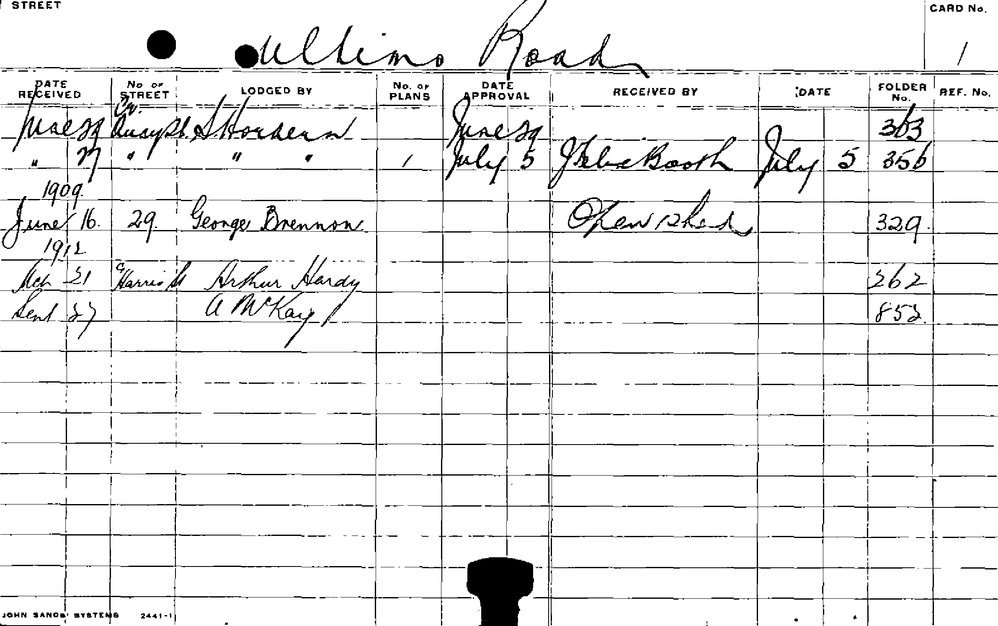 STREET CARD No.
Ultimo Road 1
DATE RECEIVED No OF STREET LODGED BY No. OF PLANS DATE APPROVAL RECEIVED BY DATE FOLDER No. REF. No.
Cr
June 29 Quay St. S Hordern June 29 363
" 27 " " " 1 July 5 J Felix Booth July 5 356
1909.
June 16. 29. George Brennon. Open Shed 329.
1912
21 Harris St Arthur Hardy 262
Sept 27 A McKay 852
JOHN SANDS' SYSTEMS 2441-1